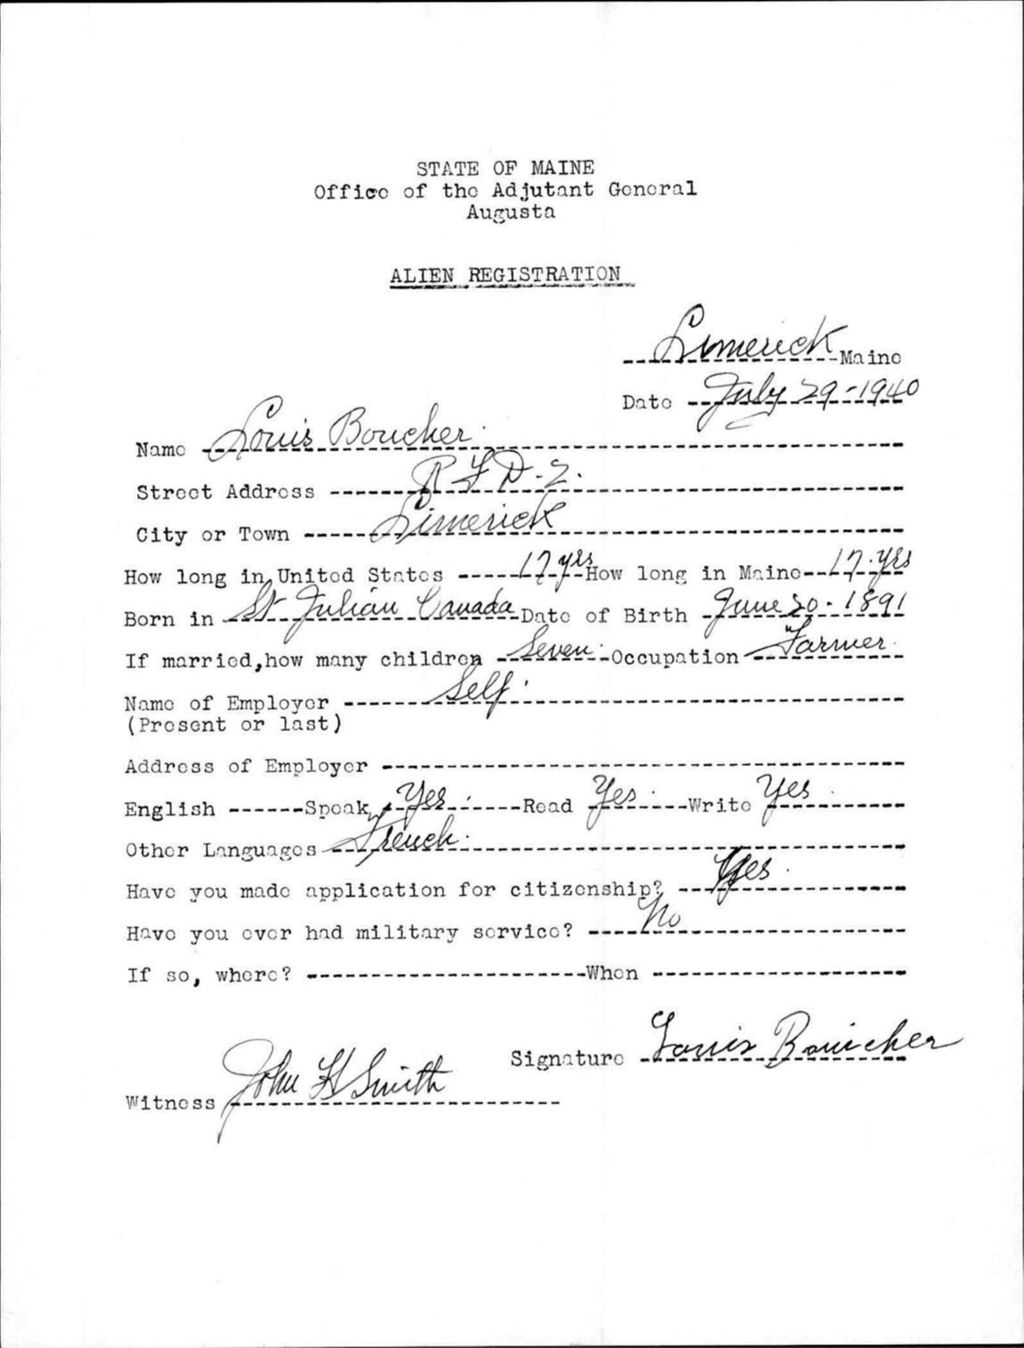 STATE OF MAINE
Office of the Adjutant General
Augusta
ALIEN REGISTRATION
Limerick Maine
Date July 29-1940
Name Louis Boucher.
Street Address R F D-2.
City or Town Limerick
How long in United States 17 yrs How long in Maine 17.yrs
Born in St Julian Canada Date of Birth June 20-1891
If married, how many children Seven. Occupation Farmer.
Name of Employer Self.
(Present or last)
Address of Employer
English Speak Yes. Read Yes. Write Yes.
Other Languages French.
Have you made application for citizenship? Yes.
Have you ever had military service? No
If so, where? When
Signature Louis Boucher
Witness John H Smith